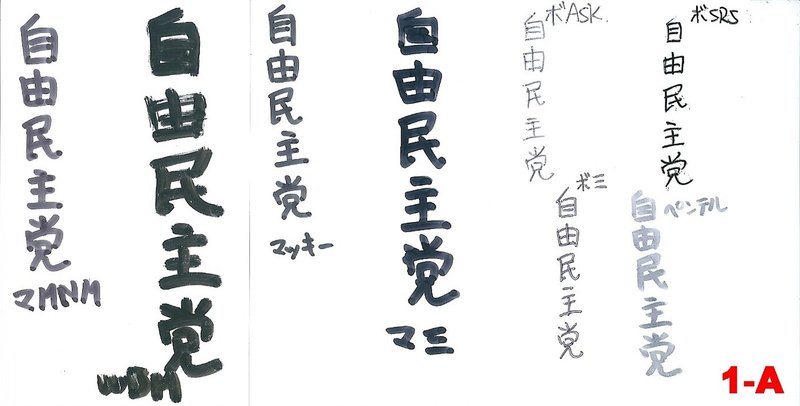 自由民主党
マMNM
自由民主党
WBM
自由民主党
マッキー
自由民主党
マミ
ボASK.
自由民主党
ボミ
自由民主党
ボSRS
自由民主党
ペンテル
自由民主党
1-A